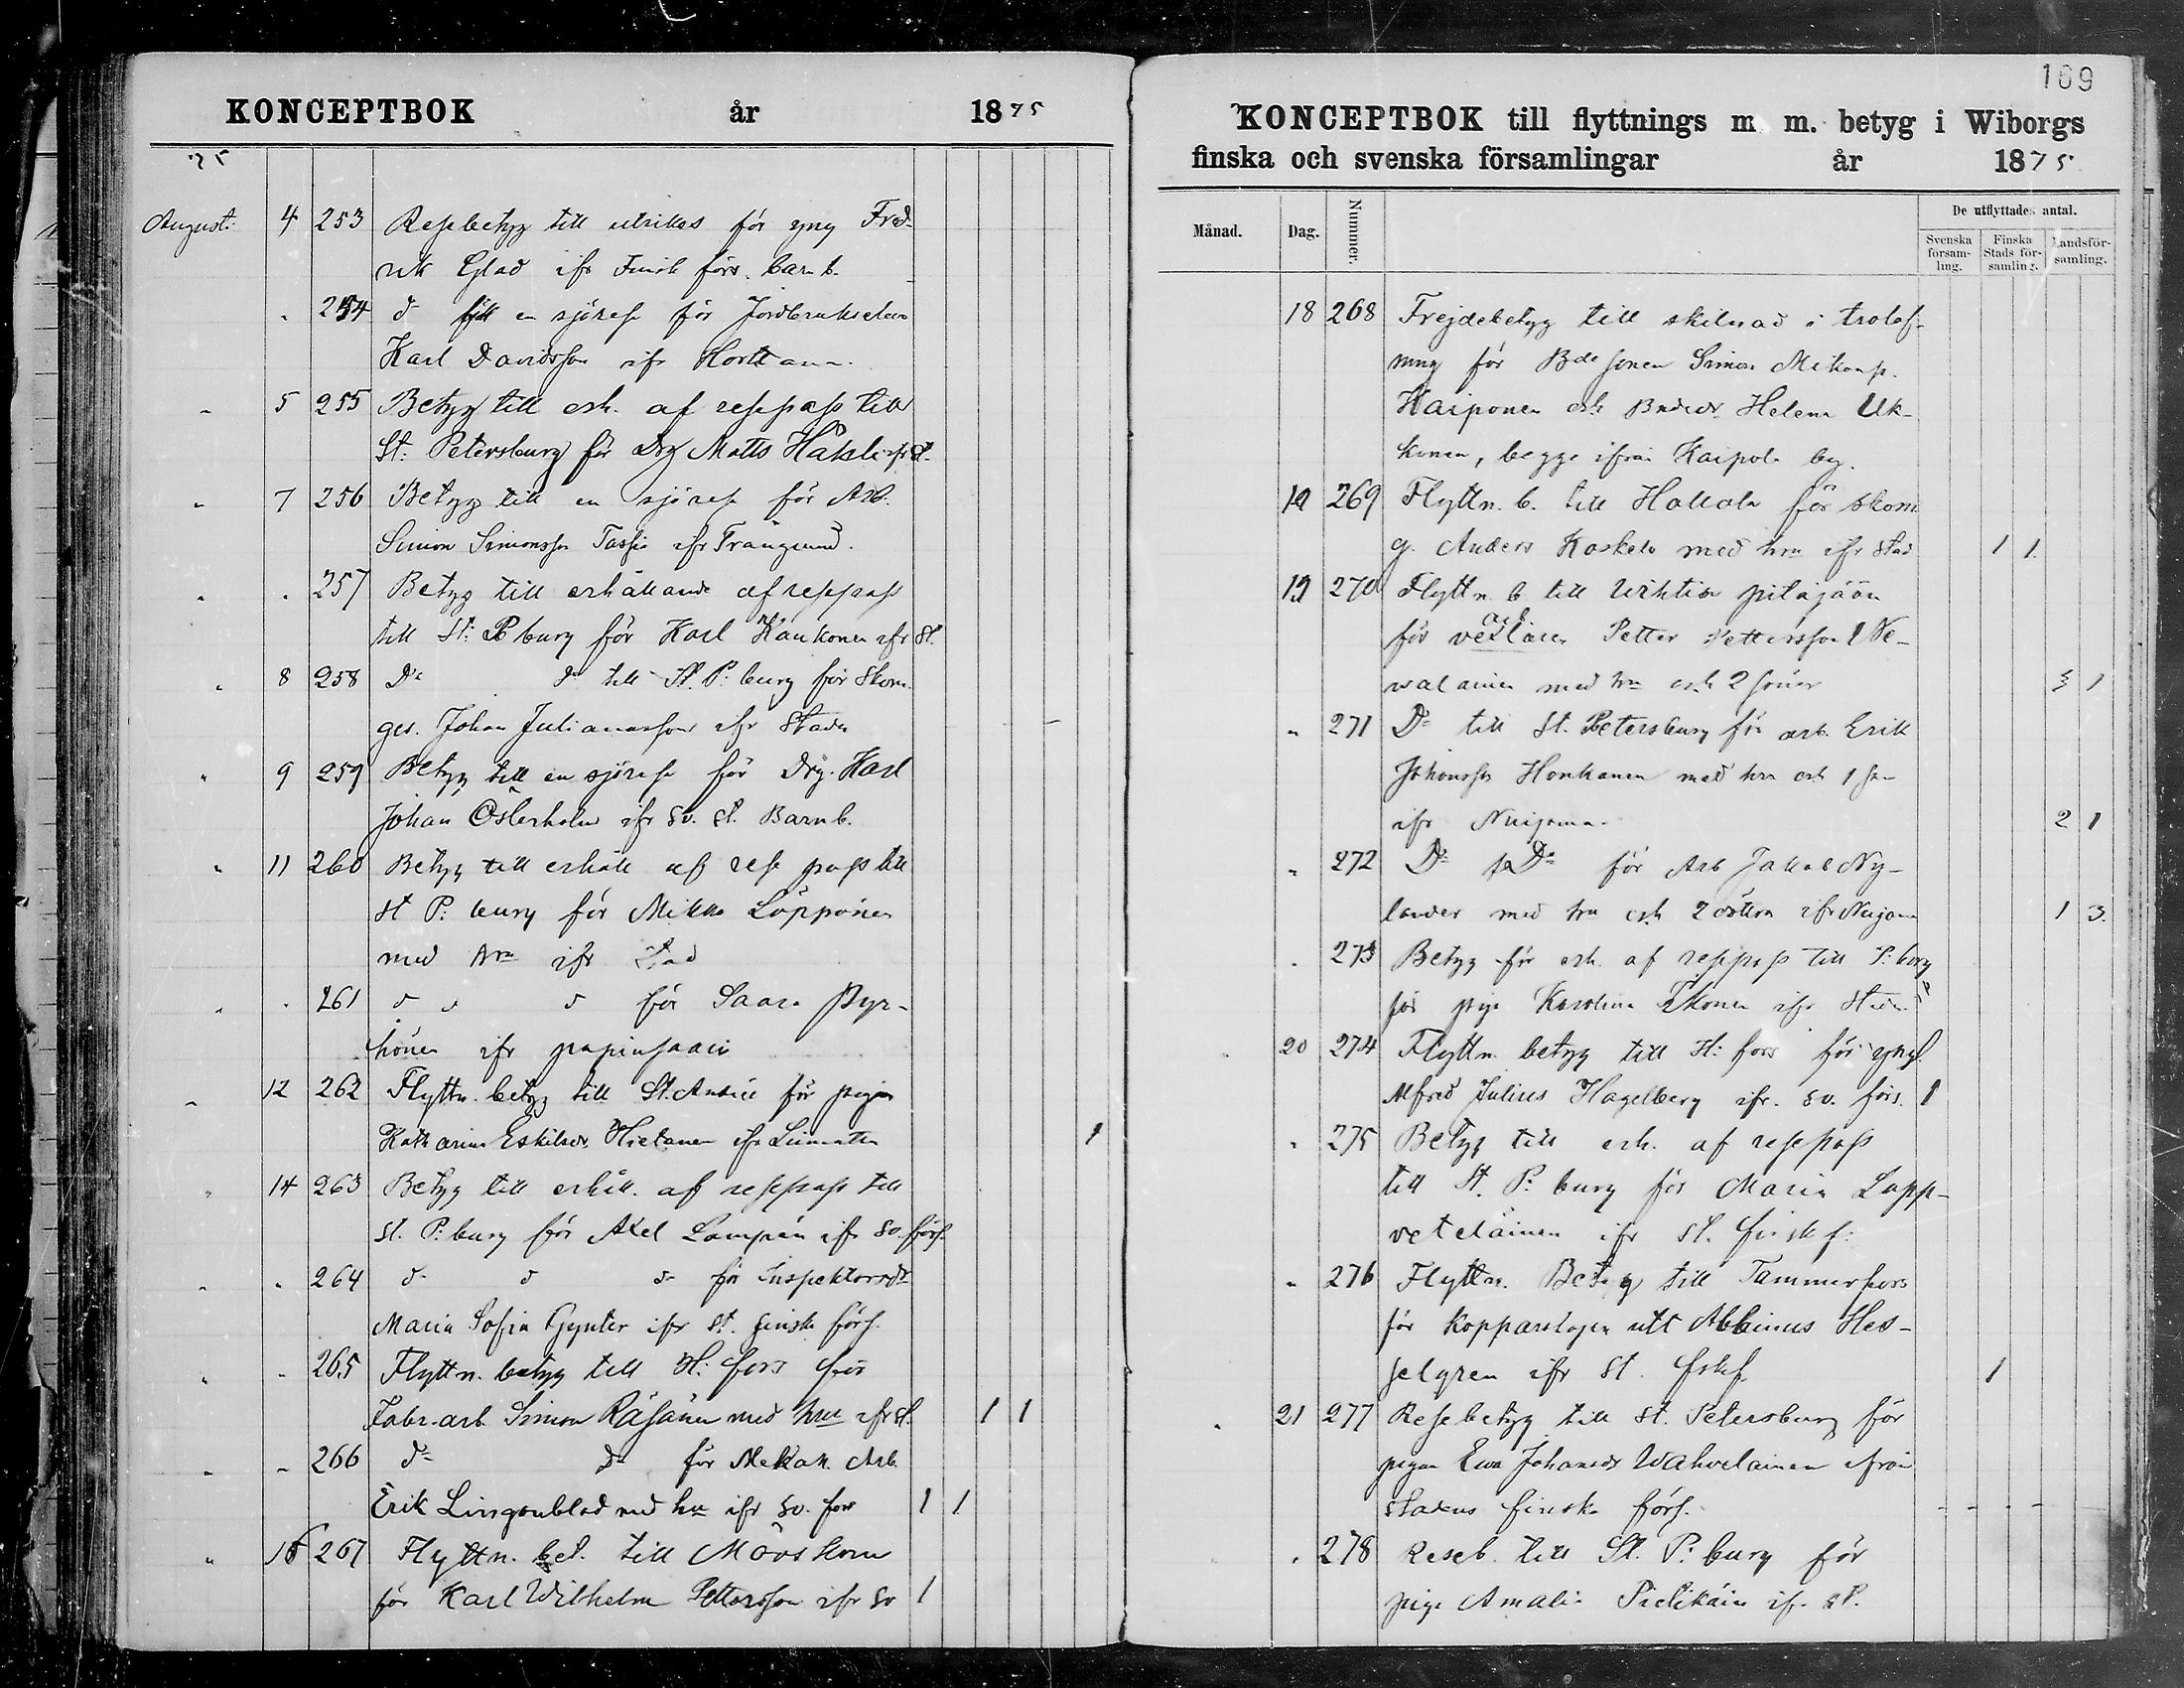 KONCEPTBOK år 1875
75
August. 4 253 Resebetyg till utrikes för yng Fred-
rik Glad ifr Finsk förs. barnb.
" 254 d till en sjöresa för
Karl Davidsson ifr Horttana.
" 5 255 Betyg till erh. af resepass till
St. Petersburg för Drg Matts ifr St.
" 7 256 Betyg till en sjöresa för Arb.
Simon Simonsson Tassia ifr Trångsund.
" " 257 Betyg till erhållande af resepass
till St: Pburg för Karl Kaukonen ifr St.
" 8 258 Do do till St. P:burg för Skom.
ges. Johan Julianasson ifr Staden
" 9 259 Betyg till en sjöresa för Drg. Karl
Johan Österholm ifr sv. st. Barnb.
" 11 260 Betyg till erhåll af rese pass till
St P:burg för Mikko Löppönen
med hru ifr Stad
" " 261 d d d för Saara Pyy-
könen ifr papinsaari
" 12 262 Flyttn. betyg till St. Andree för pigan
Katharina Eskilsdr Hietanen ifr Liimatta 1
" 14 263 Betyg till erhåll. af resepass till
St. P:burg för Axel Lampén ifr sv. förs.
" " 264 d d d för Inspektorsdr
Maria Sofia Gynter ifr St. finska förs.
" " 265 Flyttn. betyg till H:fors för
Fabr. arb. Simon Räsänen med hru ifr st. 1 1
" " 266 do do för Mekan. Arb.
Erik Lingonblad md hu ifr sv. fors 1 1
" 16 267 Flyttn. bet. till Mörskom
för Karl Wilhelm Pettersson ifr sv 1
169
KONCEPTBOK till flyttnings m. m. betyg i Wiborgs
finska och svenska församlingar år 1875
Månad. Dag. Nummer. De utflyttades antal.
Svenska församling. Finska Stads församling. Landsförsamling.
18 268 Frejdebetyg till skilnad i trolof-
ning för Bdesonen Simon
Kaiponen och Bndedr Helena Uk-
konen, begge ifrån Kaipola by.
19 269 Flyttn. b. till Hollola för skom
g. Anders Koskelo med hru ifr Stad 1 1
19 270 Flyttn. b till Wihtis pitäjään
för Petter Pettersson Ne-
walainen med hru och 2 söner 3 1
" 271 Do till St. Petersburg för arb. Erik
Johansson Honkanen med hru och 1 son
ifr Nuijama. 2 1
" 272 Do Do för Arb Jakob Ny-
lander med hru och 2 döttrar ifr Nuijama 1 3.
" 273 Betyg för erh. af resepass till P:burg
för piga Karolina ifr Staden
20 274 Flyttn. betyg till H:fors för yngl.
Alfred Julius Hagelberg ifr. sv. förs. 1
" 275 Betyg till erh. af resepass
till St. P:burg för Maria Lapp-
vetelainen ifr st. finsk f:
" 276 Flyttn. Betyg till Tammerfors
för kopparslagen Albinus Hes-
selgren ifr St. 1
" 21 277 Resebetyg till St. Petersburg för
pigan Eva Johansdr Wahvelainen ifrån
stadens finska förs.
" 278 Reseb. till St. P:burg för
piga Amalia ifr st.